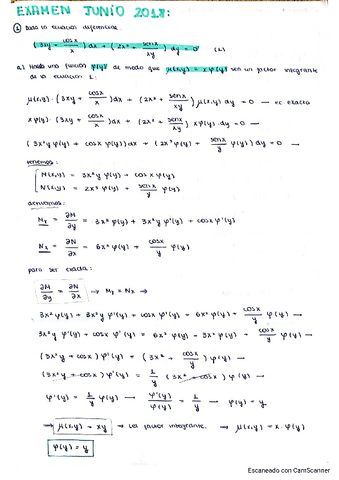 EXAMEN JUNIO 2018:
① Dada la ecuación diferencial
(3xy + cosx/x) dx + (2x² + senx/xy) dy = 0 (1)
a) Halla una función φ(y) de modo que μ(x,y) = xφ(y) sea un factor integrante
de la ecuación 1:
μ(x,y)·(3xy + cosx/x) dx + (2x² + senx/xy) μ(x,y) dy = 0 → ec. exacta
xφ(y)·(3xy + cosx/x) dx + (2x² + senx/xy) xφ(y)·dy = 0 →
(3x²y φ(y) + cosx φ(y)) dx + (2x³φ(y) + senx/y φ(y)) dy = 0 →
tenemos:
M(x,y) = 3x²y φ(y) + cosx φ(y)
N(x,y) = 2x³ φ(y) + senx/y φ(y)
derivamos:
My = ∂M/∂y = 3x² φ(y) + 3x²y φ'(y) + cosx φ'(y)
Nx = ∂N/∂x = 6x² φ(y) + cosx/y φ(y)
para ser exacta:
∂M/∂y = ∂N/∂x ⇒ My = Nx ⇒
3x² φ(y) + 3x²y φ'(y) + cosx φ'(y) = 6x² φ(y) + cosx/y φ(y) →
3x²y φ'(y) + cosx φ'(y) = 6x² φ(y) - 3x² φ(y) + cosx/y φ(y) →
(3x²y + cosx) φ'(y) = (3x² + cosx/y) φ(y) →
(3x²y + cosx) φ'(y) = 1/y (3x²y + cosx) φ(y) →
φ'(y) = 1/y φ(y) → φ'(y)/φ(y) = 1/y → φ(y) = y
⇒ μ(x,y) = xy ⇒ factor integrante. ⇒ μ(x,y) = x·φ(y)
φ(y) = y
Escaneado con CamScanner